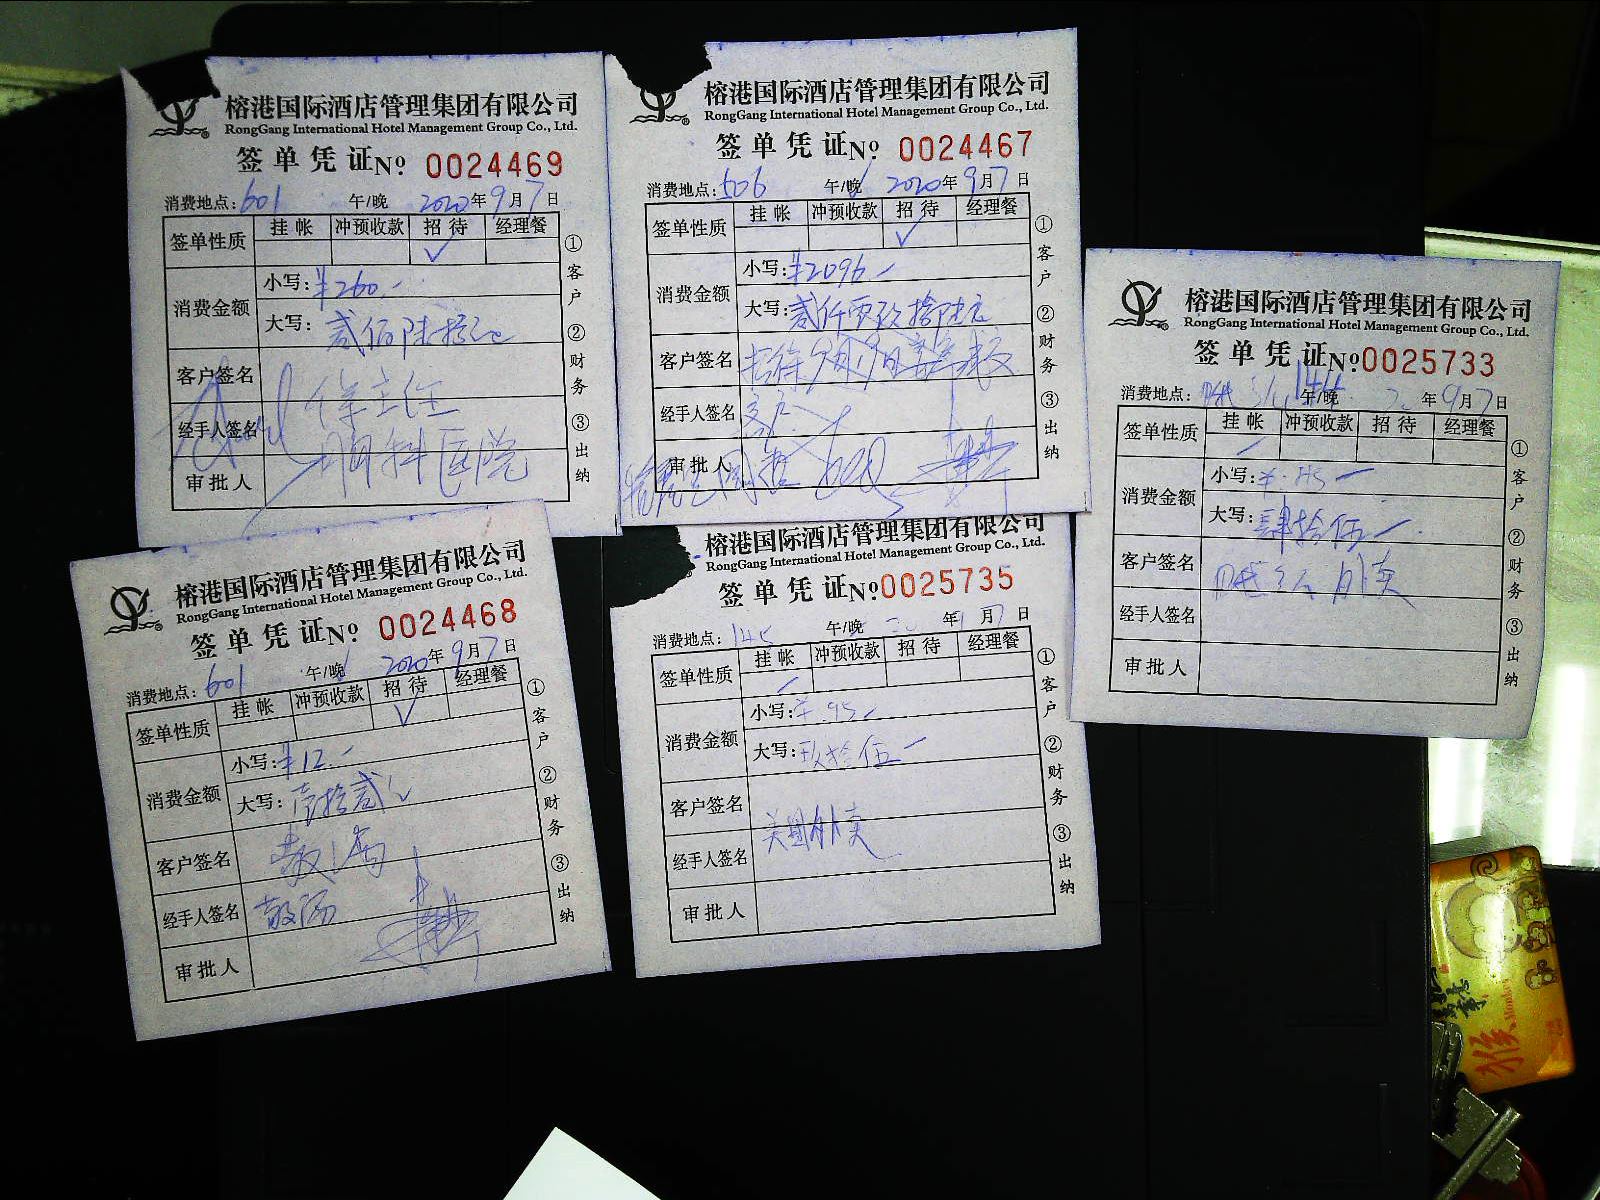 榕港国际酒店管理集团有限公司
RongGang International Hotel Management Group Co., Ltd.
签单凭证 № 0024469
消费地点: 601 午/晚 2020年9月7日
签单性质 挂帐 冲预收款 招待 经理餐
✓
消费金额 小写: ¥260.-
大写: 贰佰陆拾元
客户签名 徐主任
经手人签名
明科医院
审批人
①客户 ②财务 ③出纳
榕港国际酒店管理集团有限公司
RongGang International Hotel Management Group Co., Ltd.
签单凭证 № 0024467
消费地点: 506 午/晚 2020年9月7日
签单性质 挂帐 冲预收款 招待 经理餐
✓
消费金额 小写: ¥2096.-
大写: 贰仟零玖拾陆元
客户签名
经手人签名
审批人
①客户 ②财务 ③出纳
榕港国际酒店管理集团有限公司
RongGang International Hotel Management Group Co., Ltd.
签单凭证 №0025733
消费地点: 午/晚 年9月7日
签单性质 挂帐 冲预收款 招待 经理餐
消费金额 小写:
大写: 肆拾伍
客户签名 外卖
经手人签名
审批人
①客户 ②财务 ③出纳
榕港国际酒店管理集团有限公司
RongGang International Hotel Management Group Co., Ltd.
签单凭证 № 0024468
消费地点: 601 午/晚 2020年9月7日
签单性质 挂帐 冲预收款 招待 经理餐
✓
消费金额 小写: ¥12.-
大写: 壹拾贰元
客户签名
经手人签名
审批人
①客户 ②财务 ③出纳
榕港国际酒店管理集团有限公司
RongGang International Hotel Management Group Co., Ltd.
签单凭证 №0025735
消费地点: 145 午/晚 20年9月7日
签单性质 挂帐 冲预收款 招待 经理餐
消费金额 小写: ¥.95.-
大写: 玖拾伍
客户签名
经手人签名 美团外卖
审批人
①客户 ②财务 ③出纳
猴 Monkey